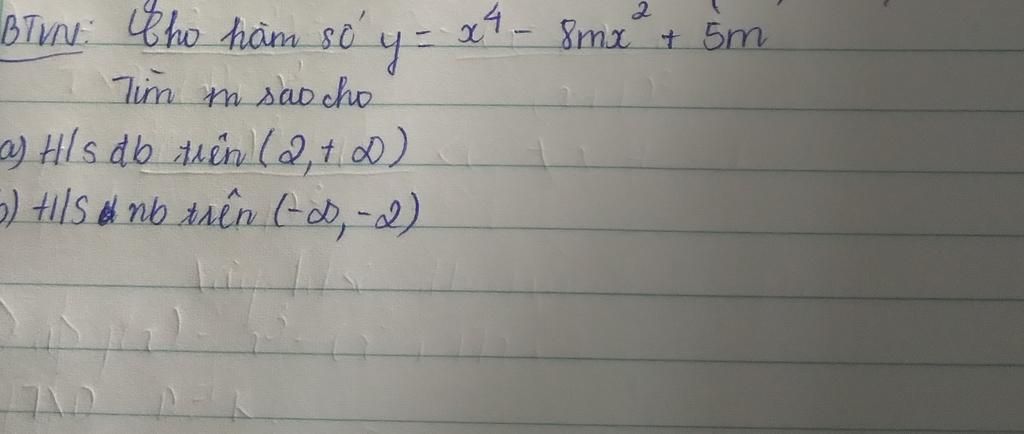 BTVN: Cho hàm số y = x⁴ - 8mx² + 5m
Tìm m sao cho
a) H/s đb trên (2, + ∞)
b) H/s nb trên (-∞, -2)